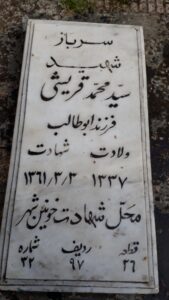 سرباز
شهید
سید محمد قریشی
فرزند ابوطالب
ولادت شهادت
۱۳۳۷ ۱۳۶۱/۳/۳
محل شهادت خونین شهر
قطعه ردیف شماره
۲۶ ۹۷ ۲۲